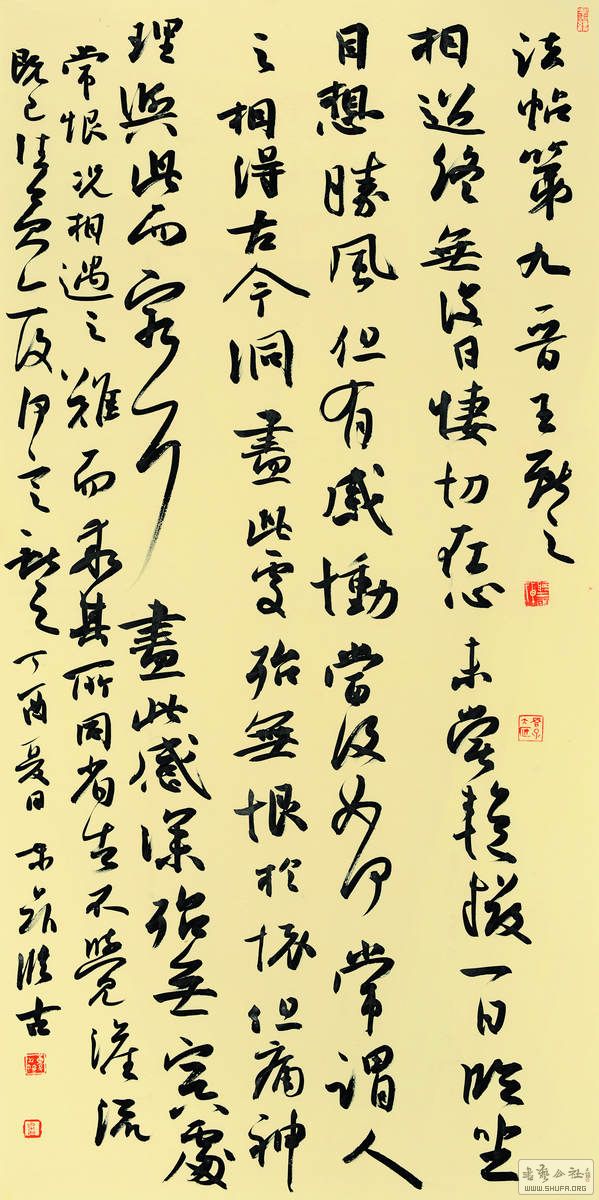 法帖第九晋王獻之
相過終無復日悽切在心未嘗暫掇一日臨坐
目想勝風但有感慟當復如何常謂人
之相得古今洞盡此處殆無恨於懷但痛神
理與此而窮耳盡此感深殆無冥處
常恨況相遇之難而乖其所同省告不覺灑流
既已往矣亦復何言獻之丁酉夏日臨古
書藝公社
WWW.SHUFA.ORG